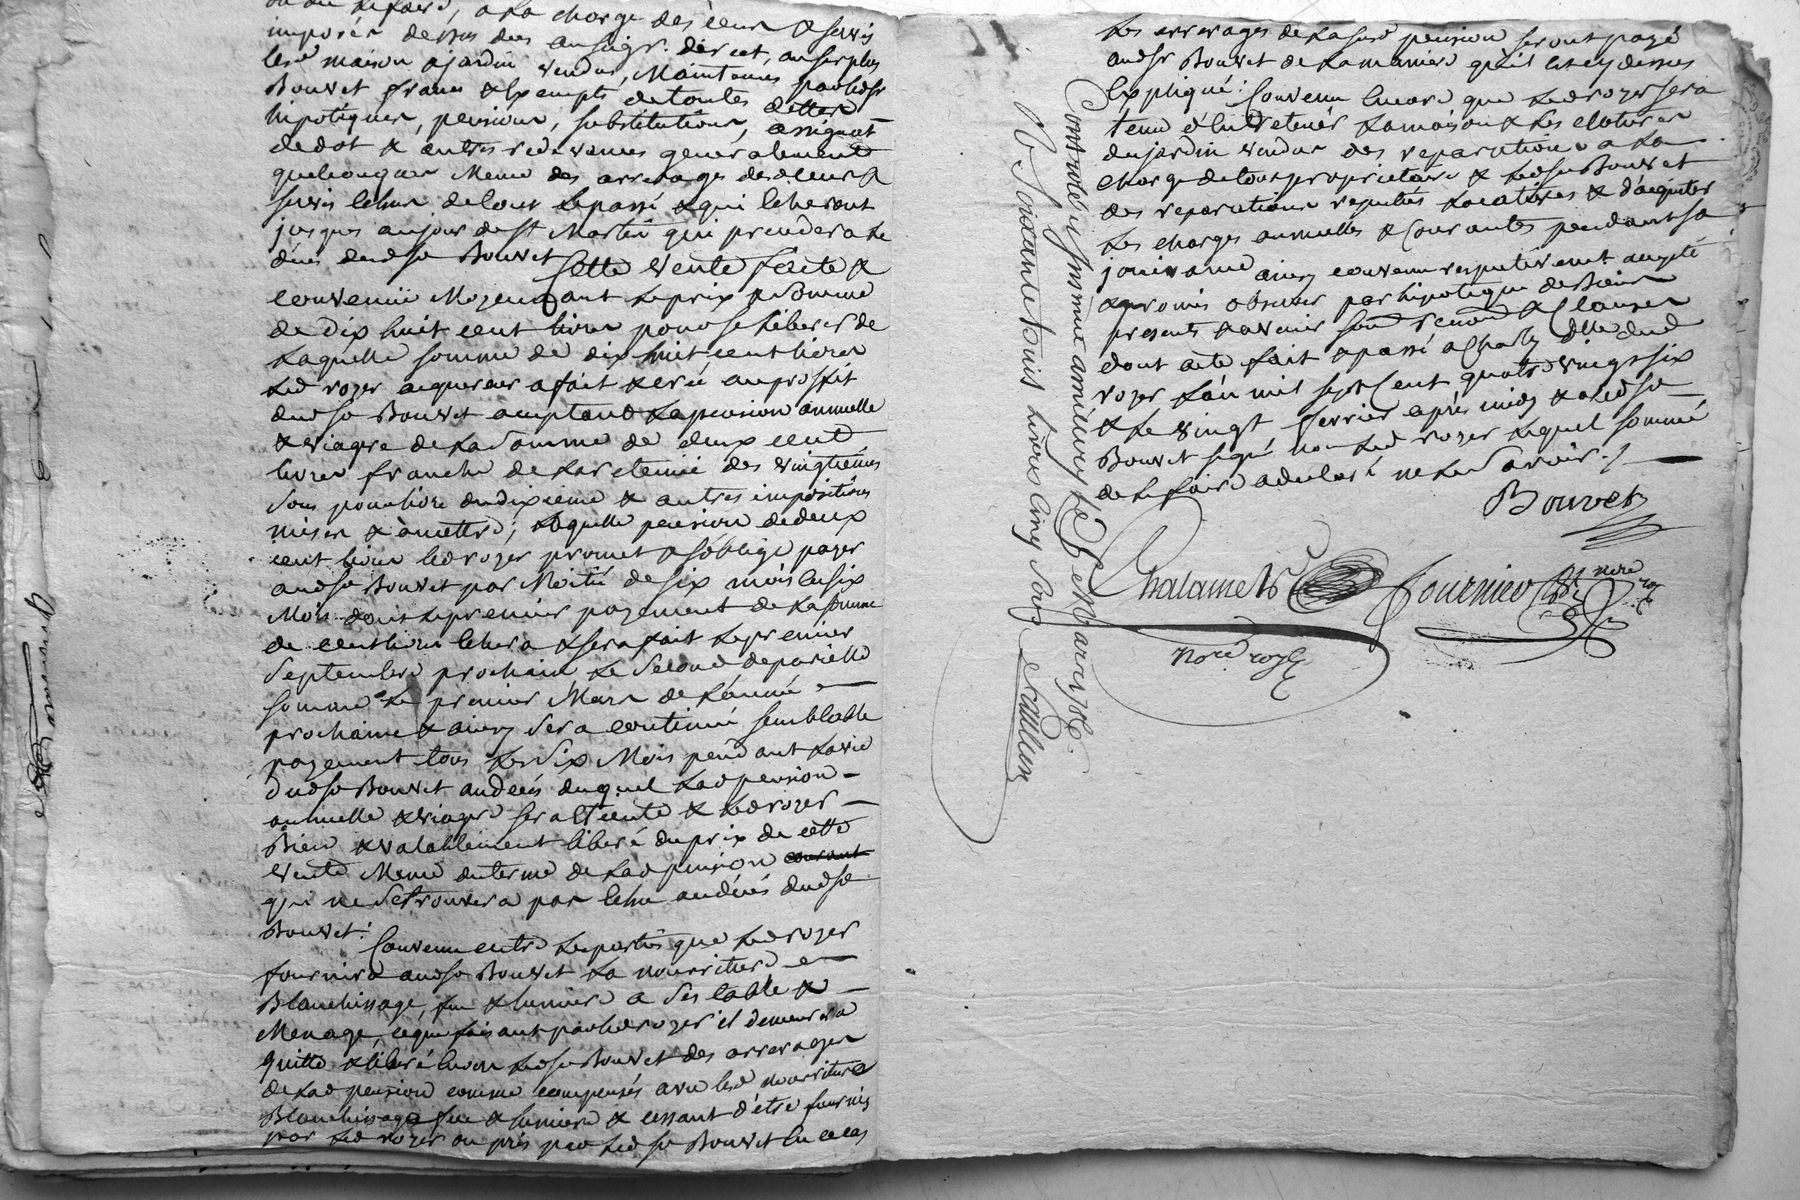 a la charge des cens & servis
imposés dessus dus au seigr. direct, au surplus
lesd maison & jardin vendus, Maintenus par ledsr
Bouvet francs & exempts de toutes dettes
hipotéques, pensions, substitutions, assignat
de dot & autres redevances generalement
quelconques Meme des arrerages desd cens &
servis echus de tout le passé & qui echeront
jusques au jour de St Martin qui prendera le
dus dud sr Bouvet Cette vente faite &
convenüe Moyennant le prix & somme
de dix huit cent livres pour se liberer de
laquelle somme de dix huit cent livres
led rozer acquereur a fait & créé au proffit
dud sr Bouvet acceptant la pension annuelle
& viagere de la somme de deux cent
livres franche de la retenüe des vingtiemes
sous pour livre du dixieme & autres impositions
mises & a mettre; laquelle pension de deux
cent livres led rozer promet & s'oblige payer
aud sr Bouvet par Moitié de six mois en six
Mois dont le premier payement de la somme
de cent livres echera & sera fait le premier
Septembre prochain le second de pareille
somme le premier Mars de l'année
prochaine & ainsy sera continué semblable
payement tous les six Mois pendant la vie
dud sr Bouvet au décés duquel lad pension
annuelle & viagere sera éteinte & led rozer
Bien & valablement liberé du prix de cette
vente Meme du terme de lad pension courant
qui ne se trouvera pas echu au décés dud sr
Bouvet:
Convenu entre les parties que led rozer
fournira aud sr Bouvet la nourriture
Blanchissage, feu & lumiere a ses table &
Menage, ce que faisant par led rozer il demeurera
quitte & liberé envers led sr Bouvet des arrerages
de lad pension comme compensés avec lesd nourriture
Blanchissage feu & lumiere & cessant d'etre fournis
par led rozer ou pris par led sr Bouvet en ce cas
Les arrerages de la susd pension seront payé
aud sr Bouvet de la maniere qu'il est cy dessus
Expliqué: Convenu encore que led rozer sera
tenu d'entretenir la maison & les clotures
du jardin vendus des reparations a la
charge de tous proprietaire & led sr Bouvet
des reparations reputés locatives & d'acquiter
les charges annuelles & courantes pendant sa
jouissance ainsy convenu respectivement accepté
& promis observer par hipoteque de Biens
presents & avenir soud renond & Clauses
dont acte fait & passé a Charly dlle dud
rozer l'an mil sept Cent quatre vingt six
& le vingt fevrier après midy & a led sr
Bouvet signé non led rozer lequel sommé
de le faire a declaré ne le savoir./.
Bouvet
Chalamet
Fournier
nore
Nore royl
Controllé
& Mars 1786.
R Soixante huit livres cinq sols